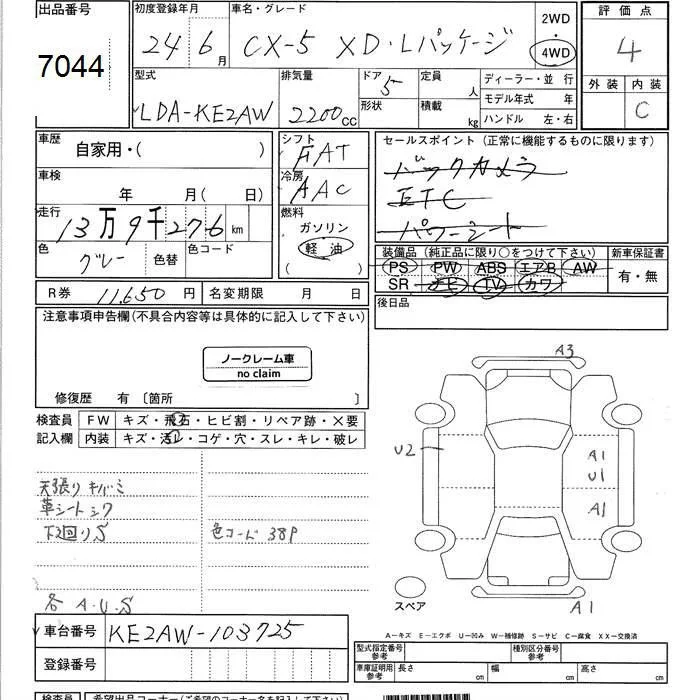 出品番号
7044
初度登録年月
24 6月
車名・グレード
CX-5 XD・Lパッケージ
2WD
・
4WD
評価点
4
外装 内装
C
型式
LDA-KE2AW
排気量
2200cc
ドア
5
形状
定員 人
積載 kg
ディーラー・並 行
モデル年式 年
ハンドル 左・右
車歴
自家用・( )
車検
年 月( 日)
走行
13万9千276km
色
グレー
色替
色コード
シフト
FAT
冷房
AAC
燃料
ガソリン
軽油
( )
セールスポイント (正常に機能するものに限ります)
バックカメラ
ETC
パワーシート
装備品 (純正品に限り○をつけて下さい)
PS PW ABS エアB AW
SR ナビ TV カワ
新車保証書
有・無
後日品
R券 11,650円
名変期限 月 日
注意事項申告欄(不具合内容等は具体的に記入して下さい)
ノークレーム車
no claim
修復歴 有 〔箇所 〕
検査員
記入欄
FW キズ・飛石・ヒビ割・リペア跡・X要
内装 キズ・汚レ・コゲ・穴・スレ・キレ・破レ
天張りキバミ
革シートシワ
下廻りS
色コード 38P
各 A.U.S
車台番号 KE2AW-103725
登録番号
A3
U2
A1
U1
A1
A1
スペア
A−キズ E−エクボ U−凹み W−補修跡 S−サビ C−腐食 XX−交換済
型式指定番号
参考
種別区分番号
参考
車庫証明用
参考
長さ cm
幅 cm
高さ cm
検査員
希望出品コーナー(ご希望のコーナー名を記入下さい)